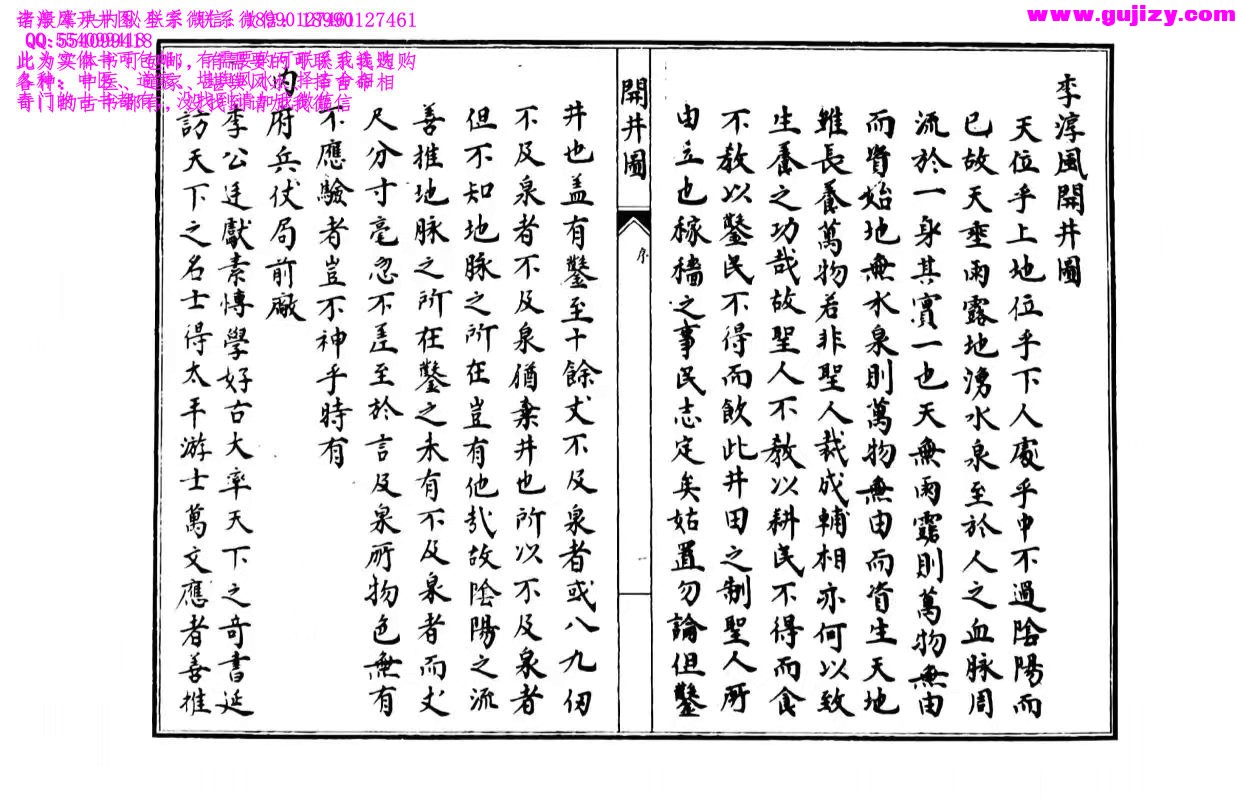 www.gujizy.com
QQ:554099418
李淳風開井圖
天位乎上地位乎下人處乎中不過陰陽而
已故天垂雨露地湧水泉至於人之血脉周
流於一身其實一也天無雨露則萬物無由
而資始地無水泉則萬物無由而資生天地
雖長養萬物若非聖人裁成輔相亦何以致
生養之功哉故聖人不教以耕民不得而食
不教以鑿民不得而飲此井田之制聖人所
由立也稼穡之事民志定矣姑置勿論但鑿
開井圖
序
井也盖有鑿至十餘丈不及泉者或八九仞
不及泉者不及泉猶棄井也所以不及泉者
但不知地脉之所在豈有他哉故陰陽之流
善推地脉之所在鑿之未有不及泉者而丈
尺分寸毫忽不差至於言及泉所物色無有
不應驗者豈不神乎時有
内府兵仗局前廠
李公廷獻素慱學好古大率天下之奇書延
訪天下之名士得太平游士萬文應者善推